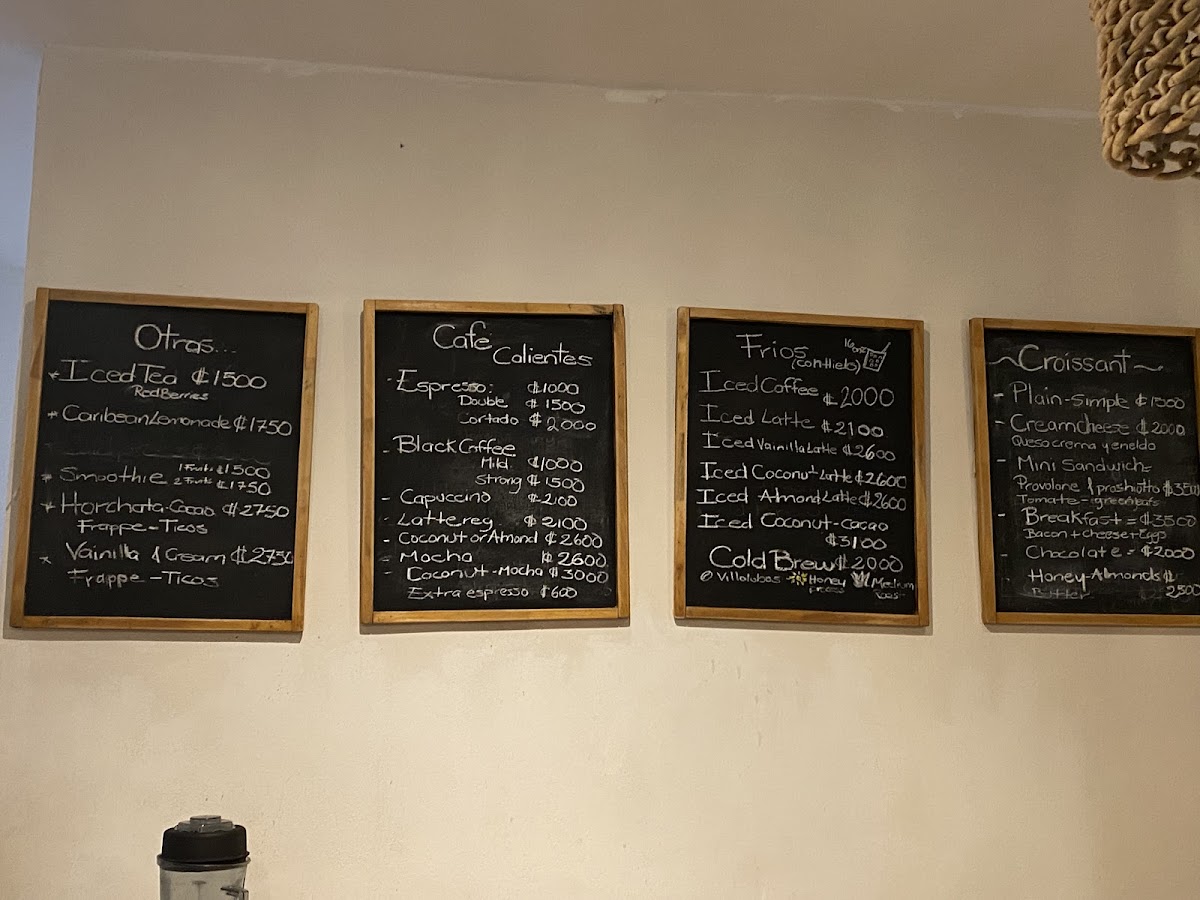 Otras...
*Iced Tea ₡1500
Red Berries
*Caribean Lemonade ₡1750
*Smoothie 1 Fruta ₡1500
2 Fruta ₡1750
*Horchata-Cacao ₡2750
Frappe-Ticos
* Vainilla & Cream ₡2750
Frappe-Ticos
Cafe
Calientes
-Espresso: ₡1000
Double ₡1500
Cortado ₡2000
-Black Coffee
Mild. ₡1000
Strong ₡1500
-Capuccino ₡2100
-Latte reg ₡2100
-Coconut or Almond ₡2600
-Mocha ₡2600
-Coconut-Mocha ₡3000
Extra espresso ₡600
Frios 16onz
(con Hielo)
Iced Coffee ₡2000
Iced Latte ₡2100
Iced Vainilla Latte ₡2600
Iced Coconut Latte ₡2600
Iced Almond Latte ₡2600
Iced Coconut-Cacao
₡3100
Cold Brew ₡2000
Villalobos Honey Medium
~Croissant~
- Plain-Simple ₡1500
- Creamcheese ₡2000
Queso crema y eneldo
- Mini Sandwich=
Provolone & proshiutto ₡3500
Tomate-greenleafs
- Breakfast = ₡3500
Bacon + cheese + Eggs
- Chocolate = ₡2000
- Honey-Almonds ₡
Butter 2500